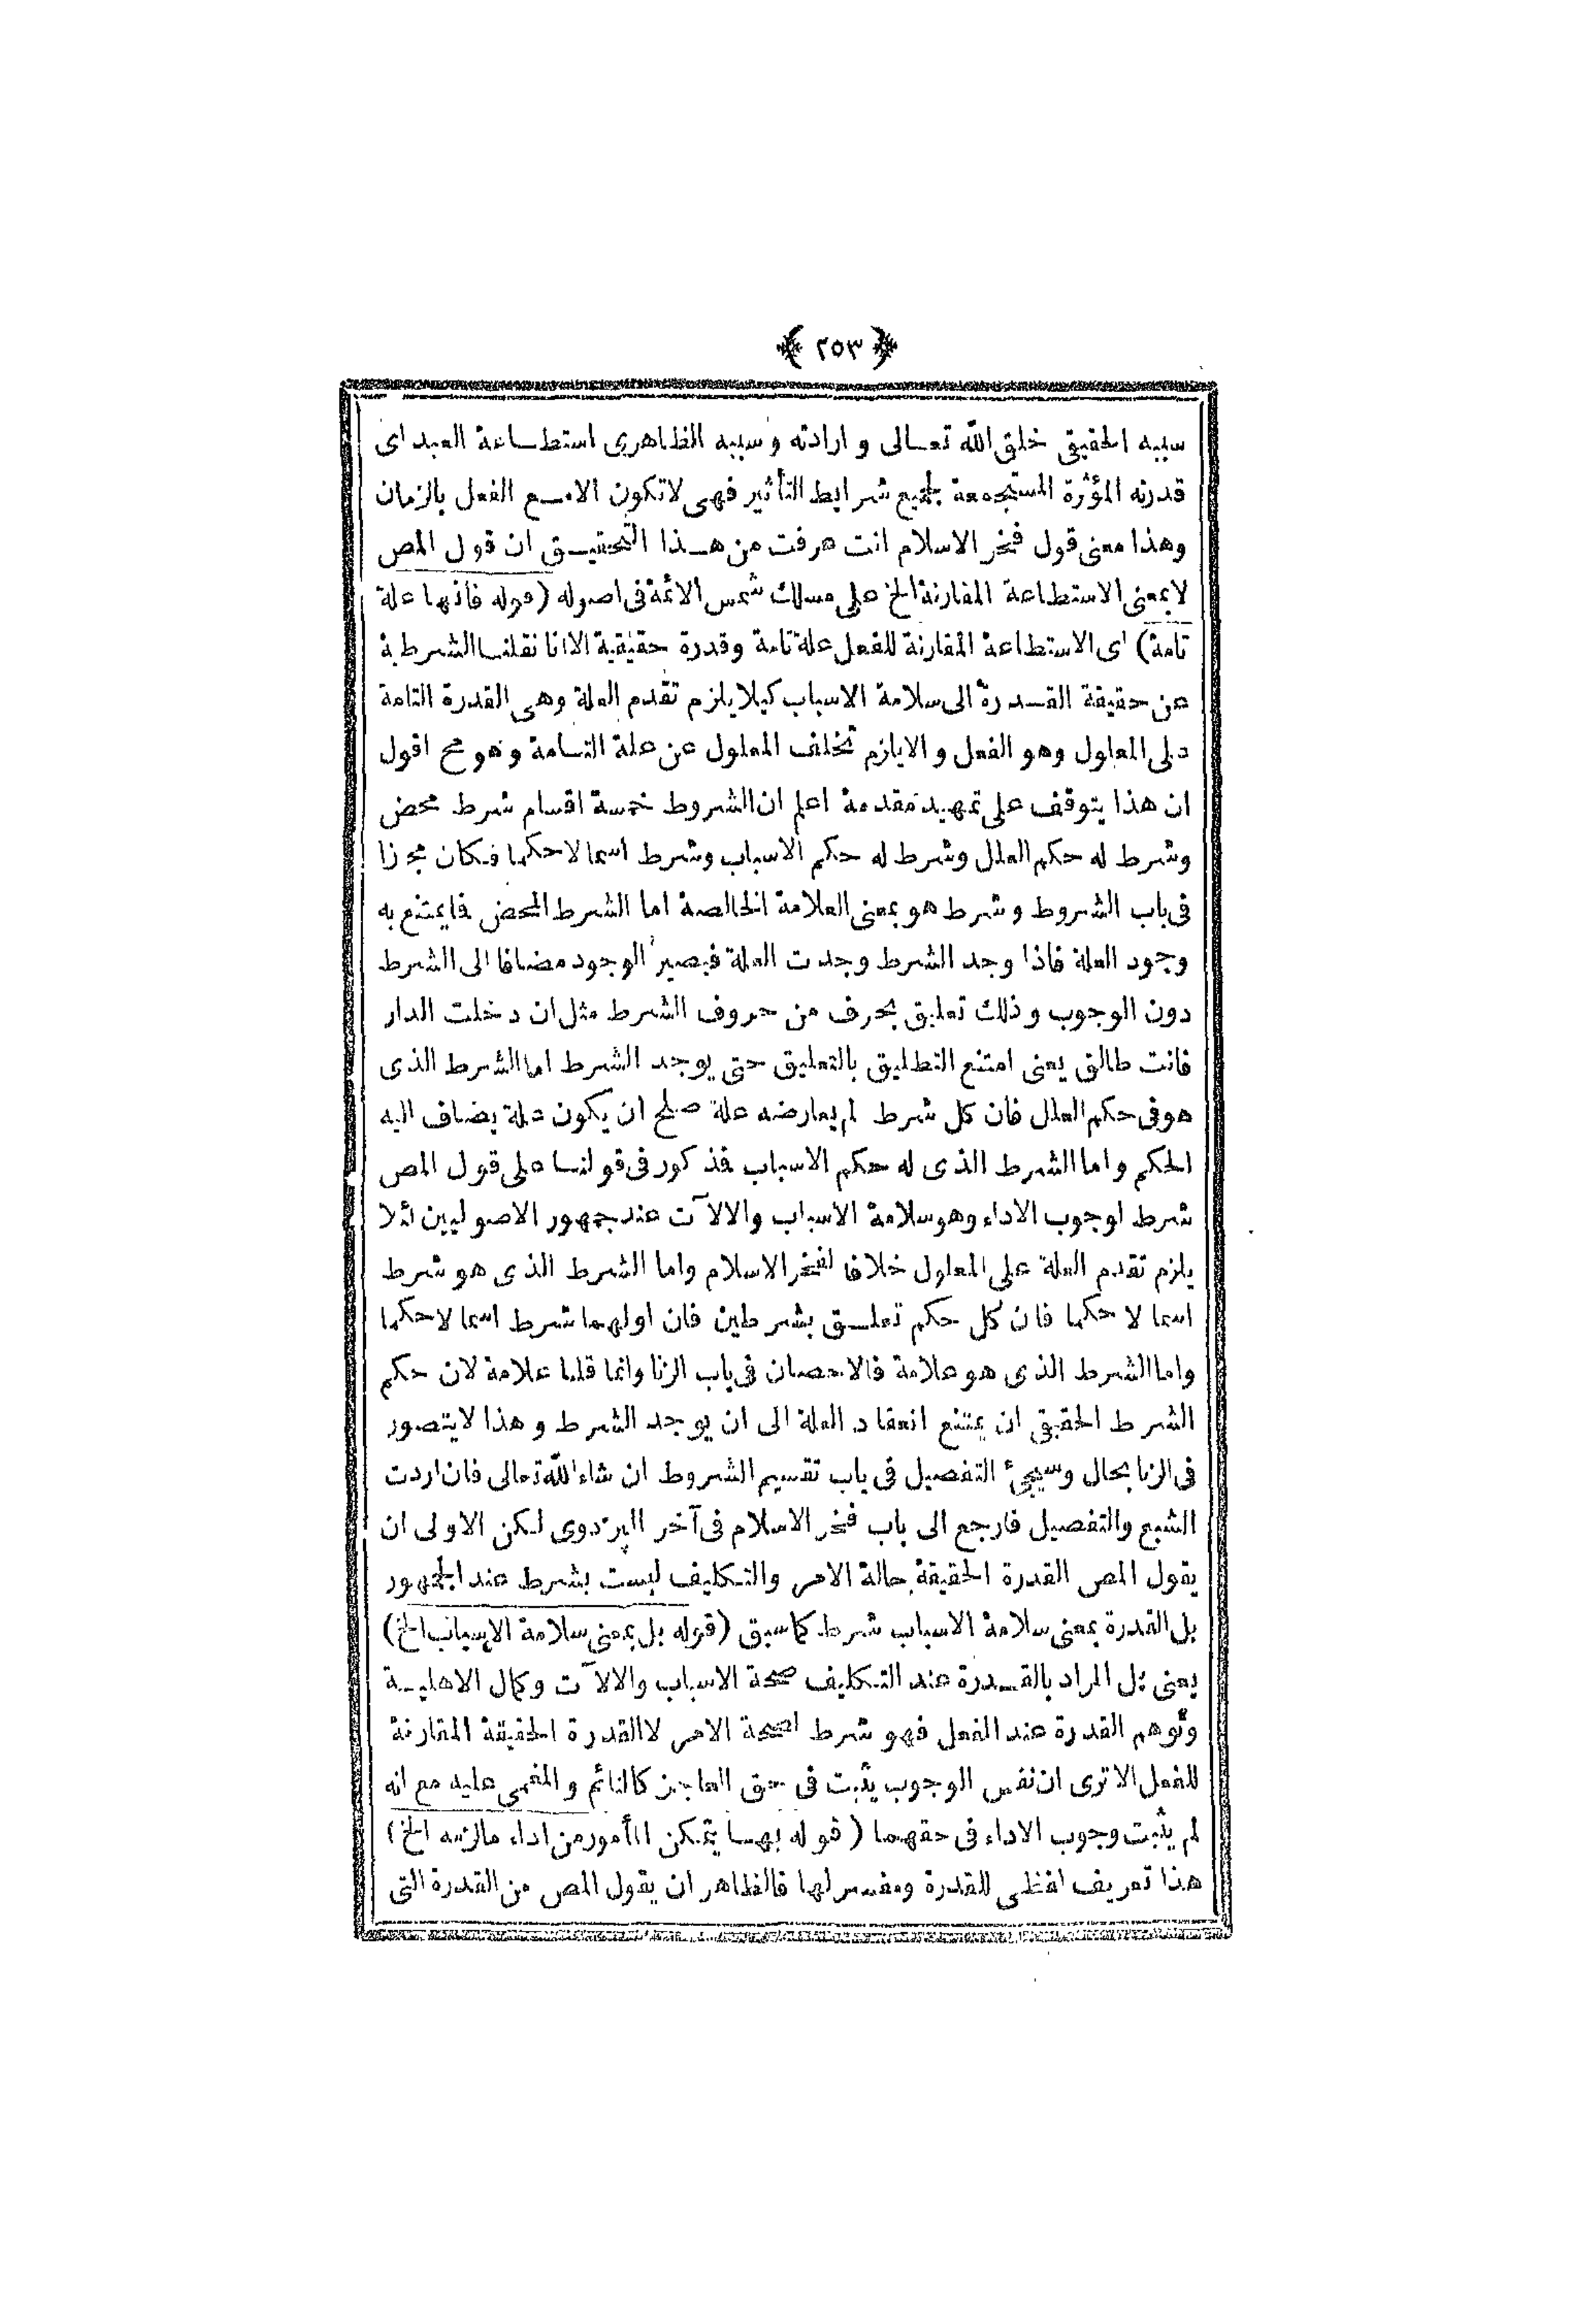 ﴿ ٢٥٣ ﴾
سببه الحقيقى خلق الله تعالى و ارادته و سببه الظاهرى استطاعة العبد اى
قدرته المؤثرة المستجمعة لجميع شرايط التأثير فهى لاتكون الامع الفعل بالزمان
وهذا معنى قول فخر الاسلام انت عرفت من هذا التحقيق ان قول المص
لابمعنى الاستطاعة المقارنة الخ على مسلك شمس الائمة فى اصوله (قوله فانها علة
تامة) اى الاستطاعة المقارنة للفعل علة تامة وقدرة حقيقية الا انا نقلنا الشرطية
عن حقيقة القدرة الى سلامة الاسباب كيلا يلزم تقدم العلة وهى القدرة التامة
على المعلول وهو الفعل و الايلزم تخلف المعلول عن علة التامة وهو مح اقول
ان هذا يتوقف على تمهيد مقدمة اعلم ان الشروط خمسة اقسام شرط محض
وشرط له حكم العلل وشرط له حكم الاسباب وشرط اسما لاحكما فكان مجازا
فى باب الشروط وشرط هو بمعنى العلامة الخالصة اما الشرط المحض فايمتنع به
وجود العلة فاذا وجد الشرط وجدت العلة فيصير الوجود مضافا الى الشرط
دون الوجوب وذلك تعليق بحرف من حروف الشرط مثل ان دخلت الدار
فانت طالق يعنى امتنع التطليق بالتعليق حتى يوجد الشرط اما الشرط الذى
هو فى حكم العلل فان كل شرط لم يعارضه علة صلح ان يكون علة يضاف اليه
الحكم واما الشرط الذى له حكم الاسباب فذكور فى قولنا على قول المص
شرط لوجوب الاداء وهو سلامة الاسباب والالآت عند جمهور الاصوليين لئلا
يلزم تقدم العلة على المعلول خلافا لفخر الاسلام واما الشرط الذى هو شرط
اسما لا حكما فان كل حكم تعلق بشرطين فان اولهما شرط اسما لاحكما
واما الشرط الذى هو علامة فالاحصان فى باب الزنا وانما قلنا علامة لان حكم
الشرط الحقيقى ان يمتنع انعقاد العلة الى ان يوجد الشرط وهذا لايتصور
فى الزنا بحال وسيجئ التفصيل فى باب تقسيم الشروط ان شاء الله تعالى فان اردت
الشبع والتفصيل فارجع الى باب فخر الاسلام فى آخر البزدوى لكن الاولى ان
يقول المص القدرة الحقيقة حالة الامر والتكليف ليست بشرط عند الجمهور
بل القدرة بمعنى سلامة الاسباب شرط كما سبق (قوله بل بمعنى سلامة الاسباب الخ)
يعنى بل المراد بالقدرة عند التكليف صحة الاسباب والالآت وكمال الاهلية
وتوهم القدرة عند الفعل فهو شرط لصحة الامر لا القدرة الحقيقة المقارنة
للفعل الا ترى ان نفس الوجوب يثبت فى حق العاجز كالنائم و المغمى عليه مع انه
لم يثبت وجوب الاداء فى حقهما (قوله بها يتمكن المأمور من اداء مالزمه الخ)
هذا تعريف لفظى للقدرة ومفسر لها فالظاهر ان يقول المص من القدرة التى